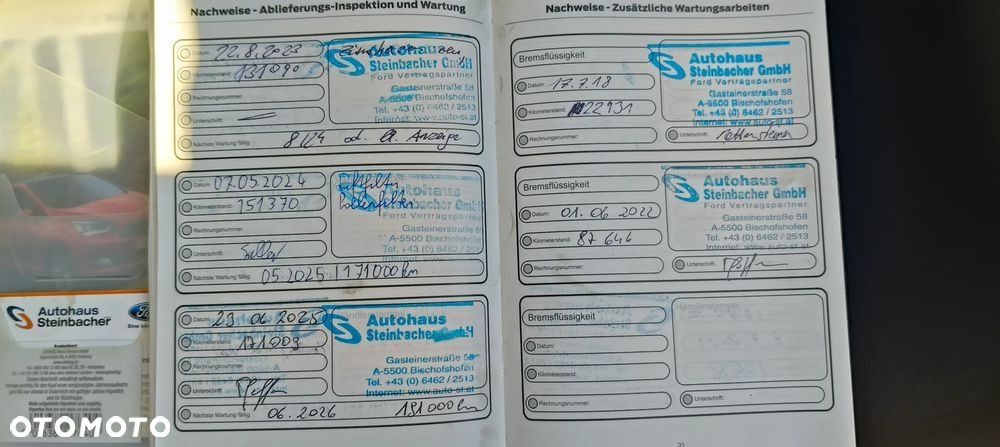 Nachweise - Ablieferungs-Inspektion und Wartung
Datum: 22.8.2023
Kilometerstand: 131090
Rechnungsnummer:
Unterschrift:
Nächste Wartung fällig: 8/24 od. Anzeige
Autohaus
Steinbacher GmbH
Ford Vertragspartner
Gasteinerstraße 58
A-5500 Bischofshofen
Tel. +43 (0) 6462 / 2513
Internet: www.auto-st.at
Datum: 07.05.2024
Kilometerstand: 151370
Rechnungsnummer:
Unterschrift:
Nächste Wartung fällig: 05.2025 / 171000km
Pollenfilter
Autohaus
Steinbacher GmbH
Ford Vertragspartner
Gasteinerstraße 58
A-5500 Bischofshofen
Tel. +43 (0) 6462 / 2513
Internet: www.auto-st.at
Datum: 23.06.2025
Kilometerstand: 171009
Rechnungsnummer:
Unterschrift:
Nächste Wartung fällig: 06.2026 191000km
Händlerstempel
Autohaus
Steinbacher GmbH
Gasteinerstraße 58
A-5500 Bischofshofen
Tel. +43 (0) 6462 / 2513
Internet: www.auto-st.at
Nachweise - Zusätzliche Wartungsarbeiten
Bremsflüssigkeit
Datum: 17.7.18
Kilometerstand: 22931
Rechnungsnummer:
Unterschrift:
Autohaus
Steinbacher GmbH
Ford Vertragspartner
Gasteinerstraße 58
A-5500 Bischofshofen
Tel. +43 (0) 6462 / 2513
Internet: www.auto-st.at
Bremsflüssigkeit
Datum: 01.06.2022
Kilometerstand: 87646
Rechnungsnummer:
Unterschrift:
Autohaus
Steinbacher GmbH
Ford Vertragspartner
Gasteinerstraße 58
A-5500 Bischofshofen
Tel. +43 (0) 6462 / 2513
Internet: www.auto-st.at
Bremsflüssigkeit
Datum:
Kilometerstand:
Rechnungsnummer:
Händlerstempel
Unterschrift:
31
Autohaus
Steinbacher
Ford
OTOMOTO